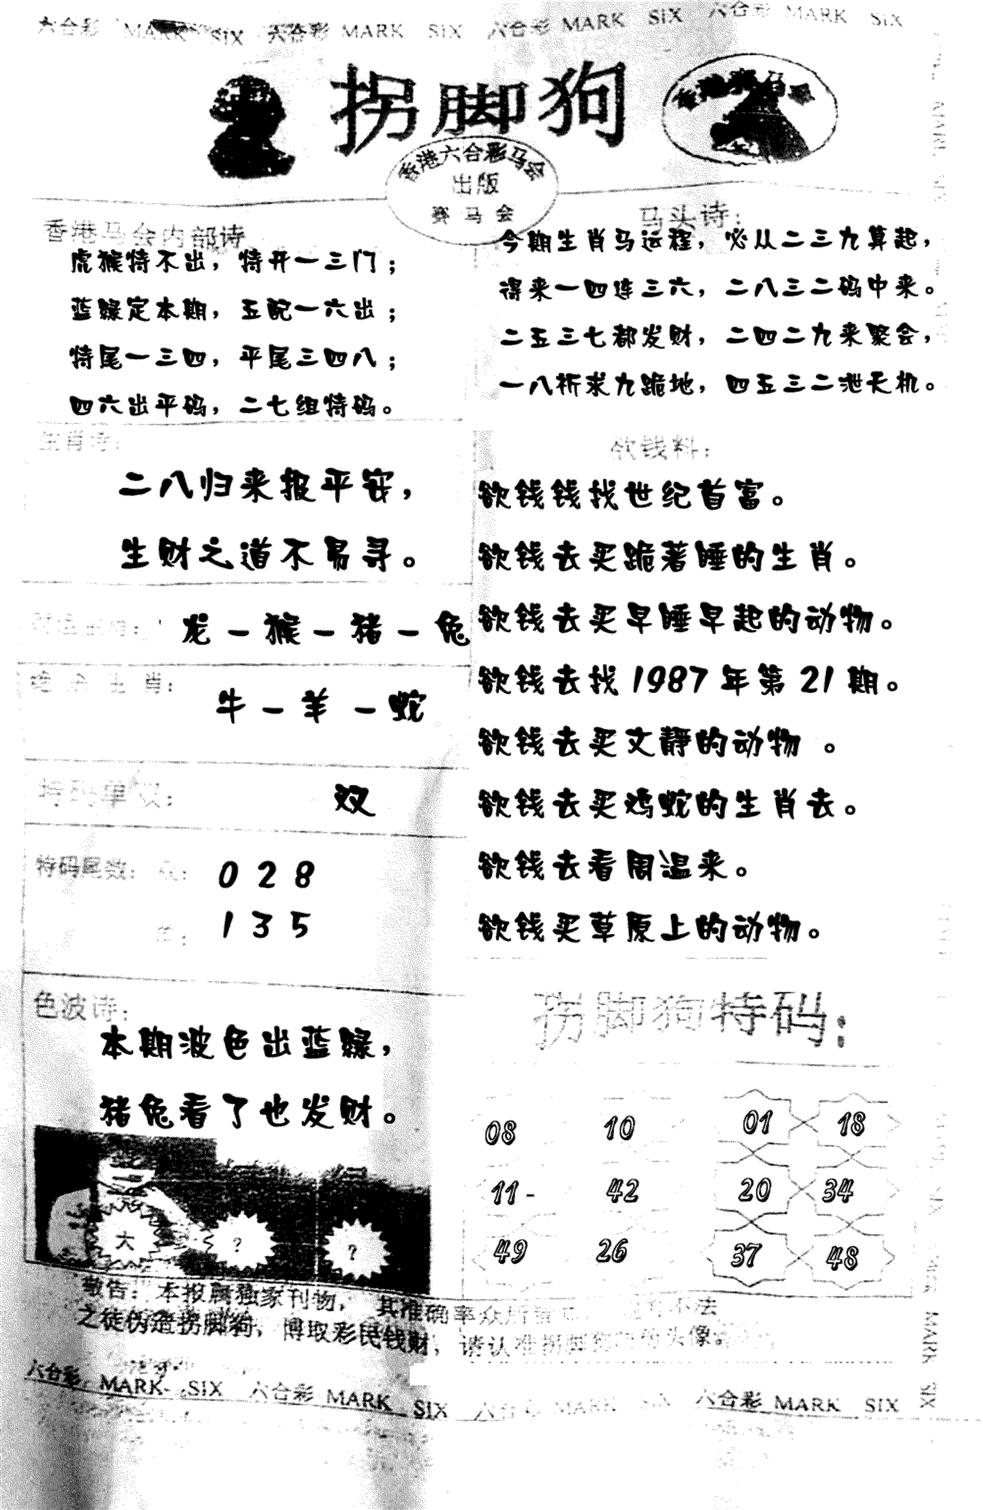 六合彩 MARK SIX 六合彩 MARK SIX 六合彩 MARK SIX 六合彩 MARK SIX
拐脚狗
香港赛马会
香港六合彩马会
出版
赛马会
香港马会内部诗
虎猴特不出，特开一三门；
蓝绿定本期，五配一六出；
特尾一三四，平尾三四八；
四六出平码，二七组特码。
马头诗：
今期生肖马运程，必从二三九算起，
得来一四连三六，二八三二码中来。
二五三七都发财，二四二九来聚会，
一八祈求九跪地，四五三二泄天机。
生肖诗：
二八归来报平安，
生财之道不易寻。
龙－猴－猪－兔
绝杀生肖：
牛－羊－蛇
特码单双：
双
特码尾数：双： 0 2 8
单： 1 3 5
色波诗：
本期波色出蓝绿，
猪兔看了也发财。
大 ？ ？
欲钱料：
欲钱钱找世纪首富。
欲钱去买跪著睡的生肖。
欲钱去买早睡早起的动物。
欲钱去找1987年第21期。
欲钱去买文静的动物 。
欲钱去买鸡蛇的生肖去。
欲钱去看周温来。
欲钱买草原上的动物。
拐脚狗特码：
08 10 01 18
11- 42 20 34
49 26 37 48
敬告：本报属独家刊物，其准确率众所 不法
之徒伪造拐脚狗，博取彩民钱财，请认准拐脚狗 头像
六合彩 MARK SIX 六合彩 MARK SIX 六合彩 MARK SIX 六合彩 MARK SIX
MARK SIX